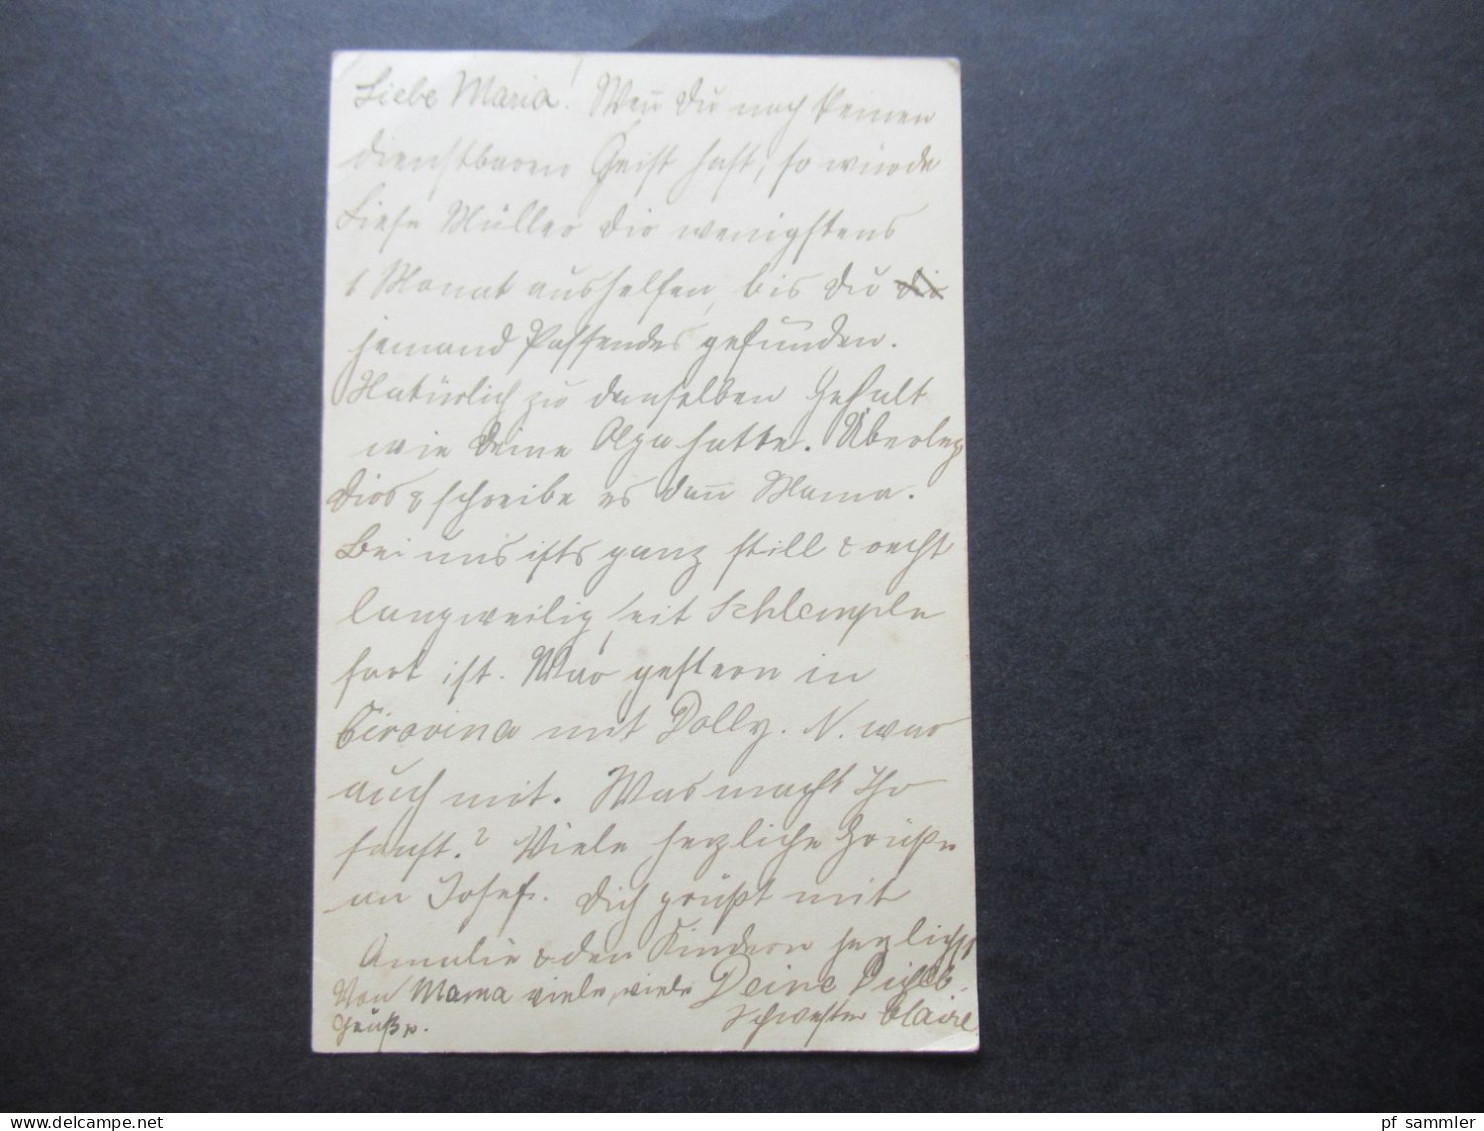 Liebe Maria! Weñ Du noch keinen
dienstbaren Geist hast, so würde
Liese Müller dir wenigstens
1 Monat aushelfen, bis du
jemand Passendes gefunden.
Natürlich zu denselben Gehalt
wie deine Olga hatte. Überleg
dies & schreibe es dañ Mama.
Bei uns ists ganz still & recht
langweilig, seit
fort ist. War gestern in
mit Dolly. N. war
auch mit. Was macht Ihr
sonst? Viele herzliche Grüße
an Josef. Dich grüßt mit
Amalie & den Kindern herzlichst
Von Mama viele, viele Deine
Grüße. Schwester Claire
pf sammler
www.delcampe.net